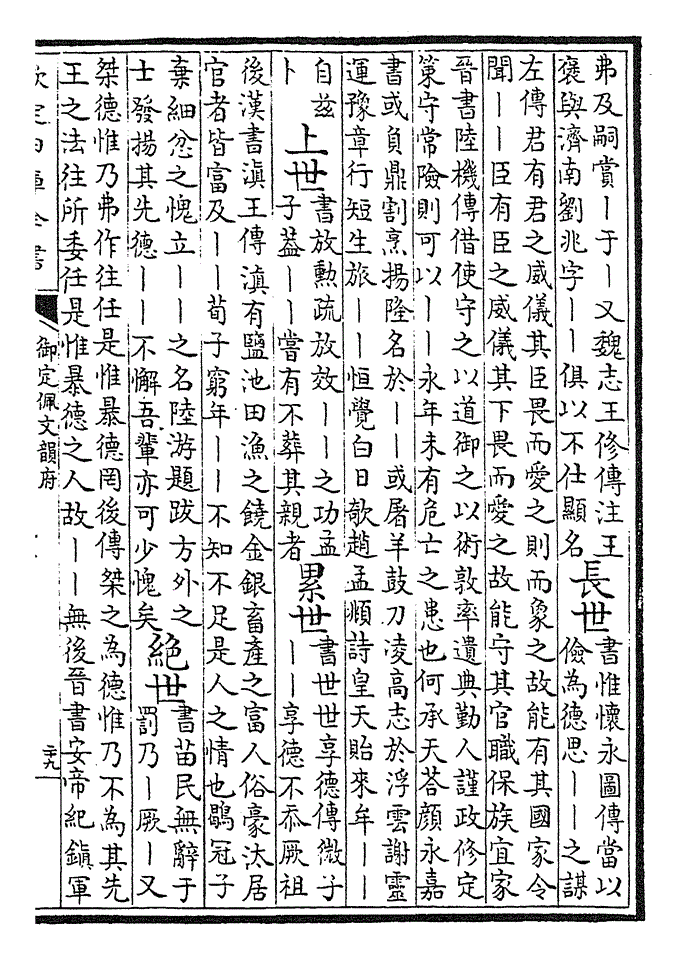 弗及嗣賞丨于丨又魏志王修傳注王
褒與濟南劉兆字丨丨俱以不仕顯名
長世
書惟懷永圖傳當以
儉為德思丨丨之謀
左傳君有君之威儀其臣畏而愛之則而象之故能有其國家令
聞丨丨臣有臣之威儀其下畏而愛之故能守其官職保族宜家
晉書陸機傳借使守之以道御之以術敦率遺典勤人謹政修定
策守常險則可以丨丨永年未有危亡之患也何承天荅顔永嘉
書或負鼎割烹揚隆名於丨丨或屠羊鼓刀凌高志於浮雲謝靈
運豫章行短生旅丨丨恒覺白日欹趙孟頫詩皇天貽來牟丨丨
自兹
卜
上世
書放勲疏放效丨丨之功孟
子葢丨丨嘗有不葬其親者
累世
書世世享德傳微子
丨丨享德不忝厥祖
後漢書滇王傳滇有鹽池田漁之饒金銀畜產之富人俗豪汰居
官者皆富及丨丨荀子窮年丨丨不知不足是人之情也鶡冠子
棄細忿之愧立丨丨之名陸游題跋方外之
士發揚其先德丨丨丨不懈吾輩亦可少愧矣
絶世
書苗民無辭于
罰乃丨厥丨又
桀德惟乃弗作往任是惟暴德罔後傳桀之為德惟乃不為其先
王之法往所委任是惟暴德之人故丨丨無後晉書安帝紀鎭軍
欽定四庫全書
御定佩文韻府
二十九